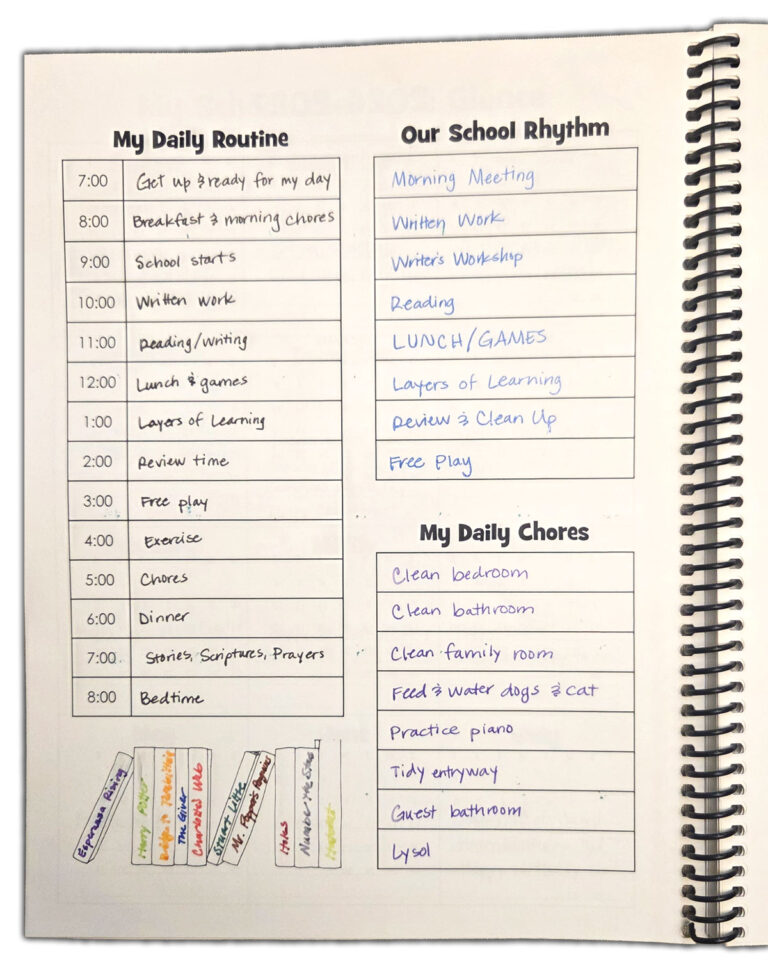 My Daily Routine
7:00 Get up & ready for my day
8:00 Breakfast & morning chores
9:00 School starts
10:00 Written work
11:00 Reading/Writing
12:00 Lunch & games
1:00 Layers of Learning
2:00 Review time
3:00 Free play
4:00 Exercise
5:00 Chores
6:00 Dinner
7:00 Stories, Scriptures, Prayers
8:00 Bedtime
Our School Rhythm
Morning Meeting
Written Work
Writer's Workshop
Reading
LUNCH/GAMES
Layers of Learning
Review & Clean Up
Free Play
My Daily Chores
Clean bedroom
Clean bathroom
Clean family room
Feed & water dogs & cat
Practice piano
Tidy entryway
Guest bathroom
Lysol
Esperanza Rising
Harry Potter
Bridge to Terabithia
The Giver
Charlotte's Web
Stuart Little
Mr. Popper's Penguins
Holes
Number the Stars